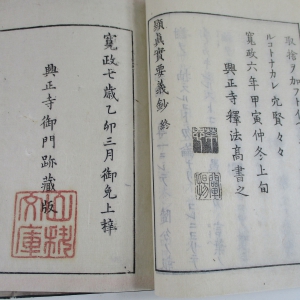 取捨ヲ加フルイ
ルコトナカレ穴賢々々
寛政六年甲寅仲冬上旬
興正寺釋法高書之
顕真實要義鈔 終
寛政七歳乙卯三月御免上梓
興正寺御門跡藏版
山科
文庫